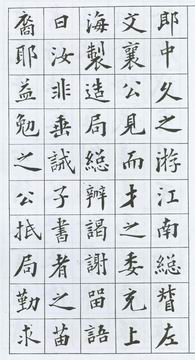 郎中久之游江南總督左
文襄公見而才之委充上
海製造局總辦謁謝留語
曰汝非垂誡子書者之苗
裔耶益勉之公抵局勤求